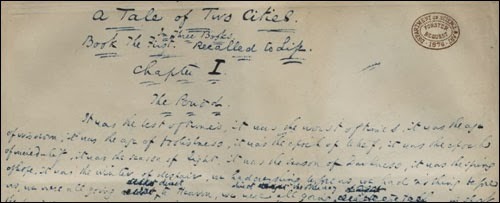 A Tale of Two Cities.
In Three Books.
Book the First. Recalled to Life.
Chapter I.
The Period.
DEPARTMENT OF SCIENCE & ART
FORSTER
BEQUEST
1876
It was the best of times, it was the worst of times, it was the age
of wisdom, it was the age of foolishness, it was the epoch of belief, it was the epoch
of incredulity, it was the season of light, it was the season of Darkness, it was the spring
of hope, it was the winter of despair, we had everything before us, we had nothing before
us, we were all going direct to Heaven, we were all going